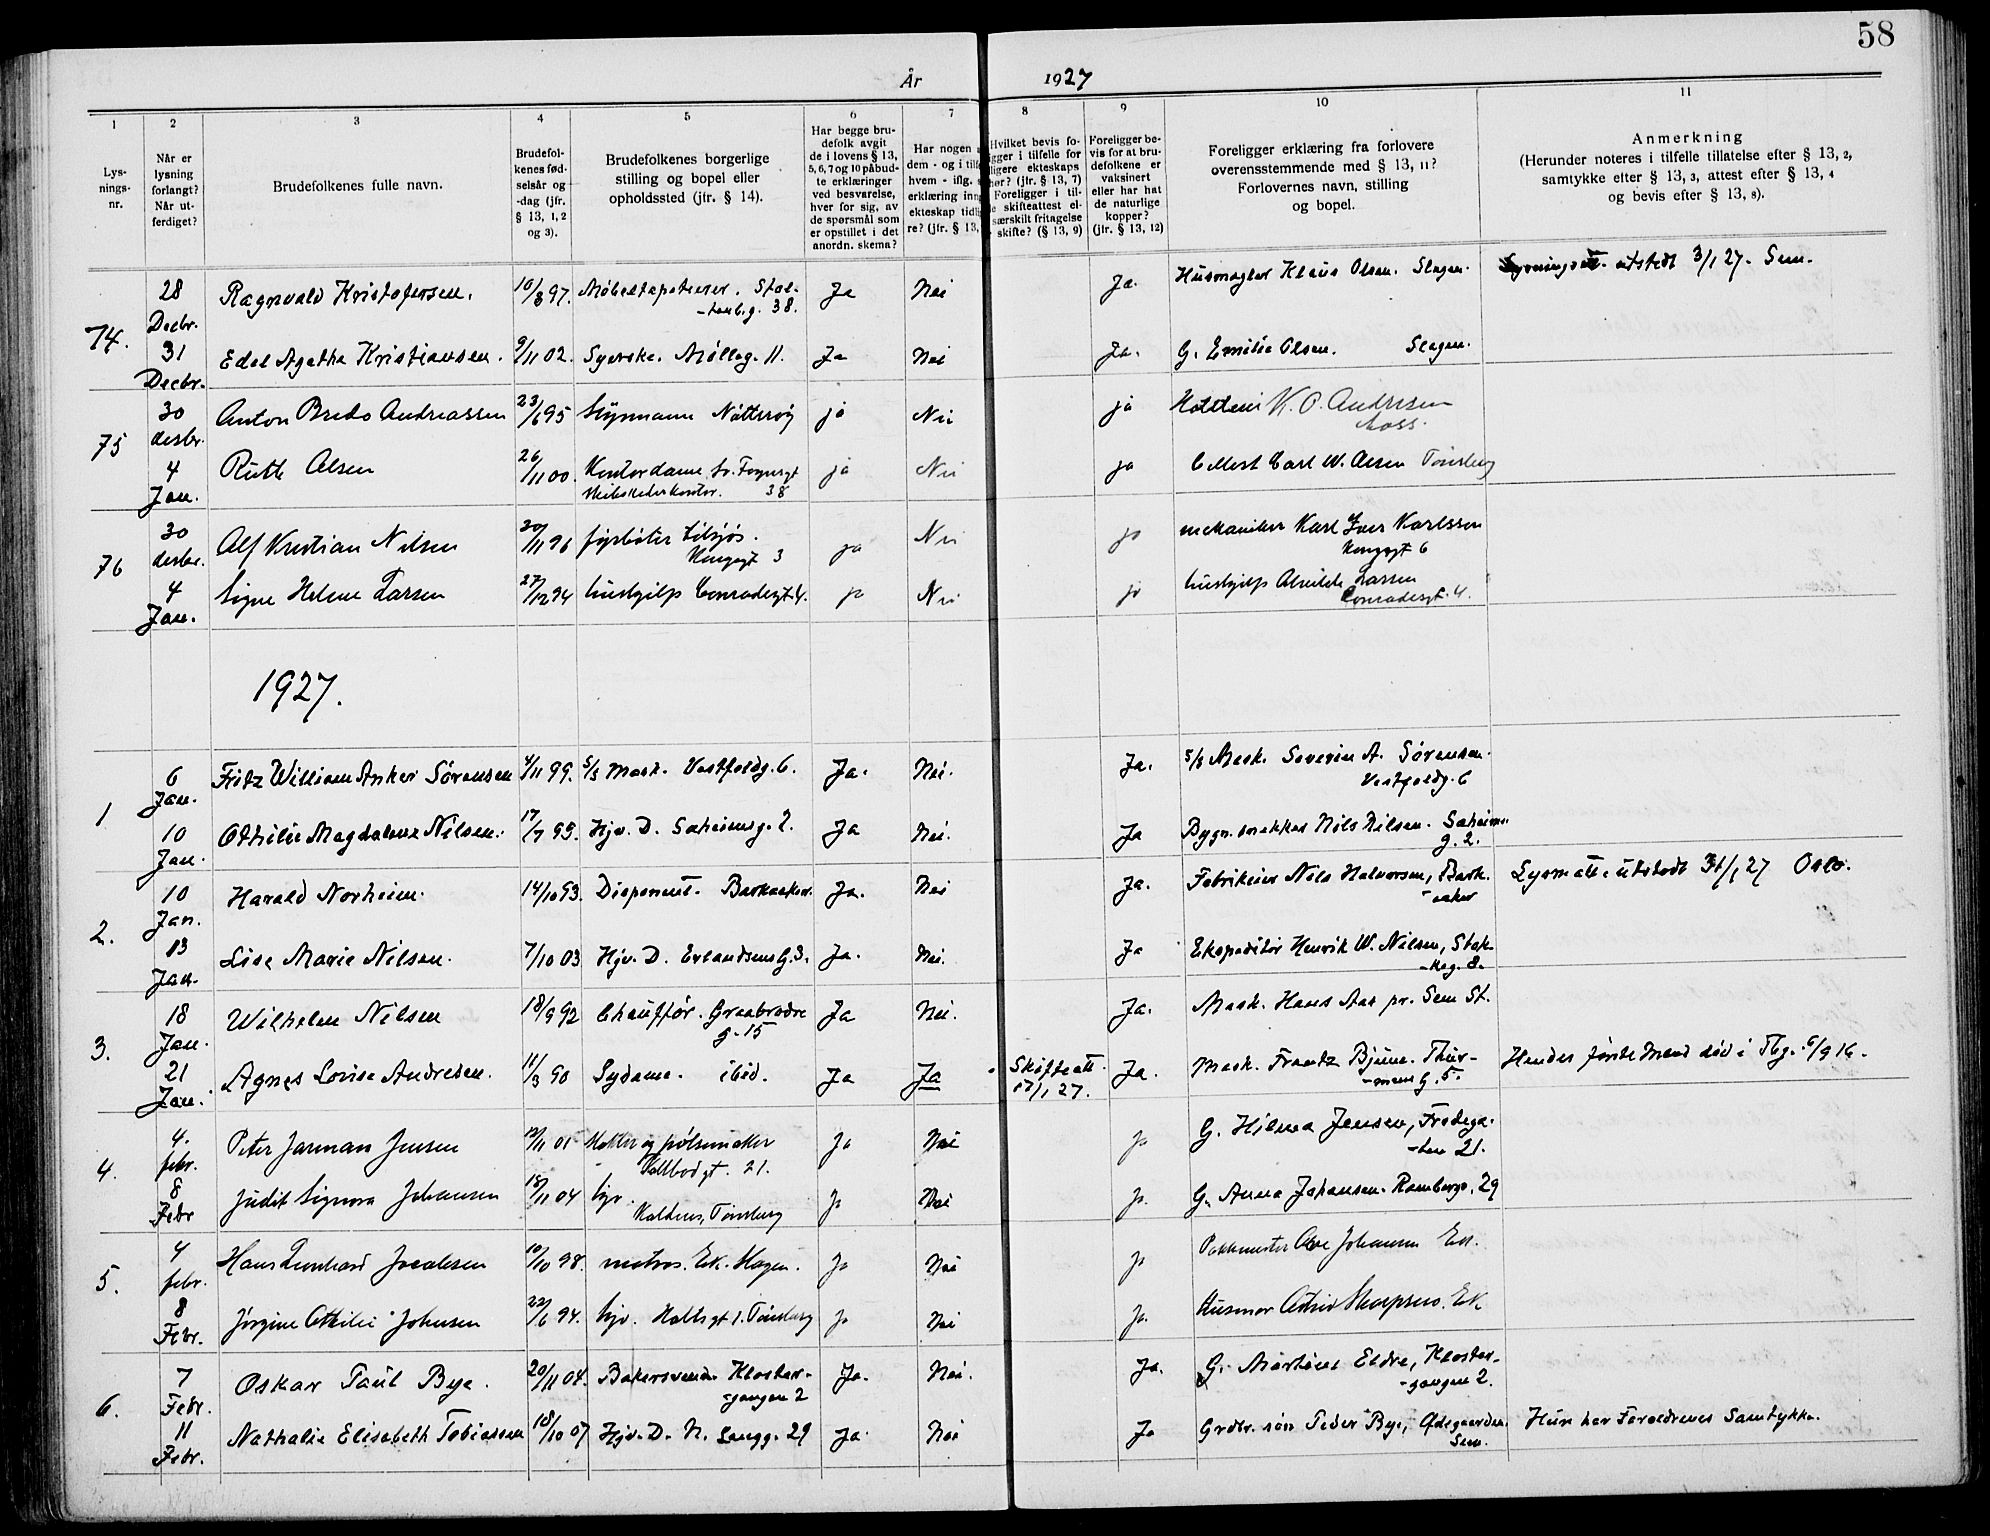 58
År 1927
1 2 3 4 5 6 7 8 9 10 11
Lys-
nings-
nr.
Når er
lysning
forlangt?
Når ut-
ferdiget?
Brudefolkenes fulle navn.
Brudefol-
kenes fød-
selsår og
-dag (jfr.
§ 13, 1, 2
og 3).
Brudefolkenes borgerlige
stilling og bopel eller
opholdssted (jfr. § 14).
Har begge bru-
defolk avgit
de i lovens § 13,
5, 6, 7 og 10 påbud-
te erklæringer
ved besvarelse,
hver for sig, av
de spørsmål som
er opstillet i det
anordn. skema?
Har nogen
dem - og i tilf
hvem - iflg.
erklæring inn
ekteskap tidli
re? (jfr. § 13,
Hvilket bevis fo-
igger i tilfelle for
ligere ekteskaps
hør? (jfr. § 13, 7)
Foreligger i til-
e skifteattest el-
særskilt fritagelse
skifte? (§ 13, 9)
Foreligger be-
vis for at bru-
defolkene er
vaksinert
eller har hat
de naturlige
kopper?
(jfr. § 13, 12)
Foreligger erklæring fra forlovere
overensstemmende med § 13, 11?
Forlovernes navn, stilling
og bopel.
Anmerkning
(Herunder noteres i tilfelle tillatelse efter § 13, 2,
samtykke efter § 13, 3, attest efter § 13, 4
og bevis efter § 13, 8).
74.
28 Decbr. Ragnvald Kristofersen. 10/8 97. Møbeltapetserer. Stol-
-tenb.g. 38. Ja Nei Ja. Husmægler Klaus Olsen. Slagen. utstedt 3/1 27. Sem.
31 Decbr. Edel Agathe Kristiansen. 9/11 02. Syerske. Mølleg. 11. Ja Nei Ja. G. Emilie Olsen. Slagen.
75
30 desbr. Anton Bredo Andreassen 23/6 95 Styrmann Nøtterøy ja Nei ja K. O. Andresen
Moss.
4 Jan. Ruth Olsen 26/11 00. Kontordame ja Nei ja Carl W. Olsen Tønsberg
38
76
30 desbr. Alf Kristian Nilsen 20/11 96 fyrbøter tilsjøs.
Kongsgt 3 ja Nei ja mekaniker Karl Karlsson
Kongsgt 6
4 Jan. Signe Helene Larsen 27/12 94 hushjelp Conradisgt. 4. ja Nei ja hushjelp Larsen
Conradisgt. 4.
1927.
1
6 Jan. Fritz William Anker Sörensen 4/11 99. s/s Mask. Vestfoldg. 6. Ja. Nei. Ja. s/s Mask. Severin A. Sörensen.
Vestfoldg. 6
10 Jan. Othilie Magdalene Nilsen. 17/7 95. Hjv. D. Sæheimsg. 2. Ja Nei. Ja Bygn. snekker Nils Nilsen. Sæheims-
g. 2.
2.
10 Jan. Harald Norheim. 14/10 93. Disponent. Barkaaker. Ja. Nei Ja. Fabrikeier Nils Halvorsen, Bark-
-aaker Lysn.att. utstedt 31/1 27 Oslo.
13 Jan. Lise Marie Nilsen. 7/10 03 Hjv. D. Erlandsens G. 3. Ja. Nei. Ja Ekspeditör Henrik W. Nilsen, Stok-
-keg. 8.
3.
18 Jan. Wilhelm Nilsen 18/9 92 Chaufför. Graabrødre
g. 15 Ja Nei. Ja. Mask. Hans Aas pr. Sem St.
21 Jan. Agnes Lovise Andresen. 11/3 90 Sydame. ibid. Ja Ja Skifteatt.
17/1 27. Ja. Mask. Frantz Bjune. Thur-
-manns G. 5. Hendes förste Mand död i Tbg. 6/9 16.
4.
4. febr. Peter Jarman Jensen 12/11 01 Slakter og pølsemaker
21. Ja Nei ja G. Hilma Jensen, Fredega-
-ten 21.
8 Febr Judit Signora Johansen 18/11 04 hjv.
Kaldnes, Tønsberg Ja Nei ja. G. Anna Johansen. Rambergv. 29
5.
4 febr. Hans Leonhard Jacobsen 10/10 98. matros. Ek. Hagen. Ja Nei ja Pakkmester Johansen Ek.
8 Febr. Jørgine Othilie Johnsen 22/6 94. hjv. Holtsgt 1. Tønsberg Ja Nei ja. Husmor Astrid Ek
6.
7 Febr. Oskar Paul Bye. 20/11 04. Bakersvend. Kloster-
-gangen 2 Ja. Nei. Ja. G. Martine Eldre, Kloster-
-gangen 2.
11 Febr. Nathalie Elisabeth Tobiassen 18/10 07 Hjv. D. N. Langg. 29 Ja. Nei Ja Grdbr. sön Peder Bye, Ødegaarden.
Sem. Hun har Foreldrenes Samtykke.